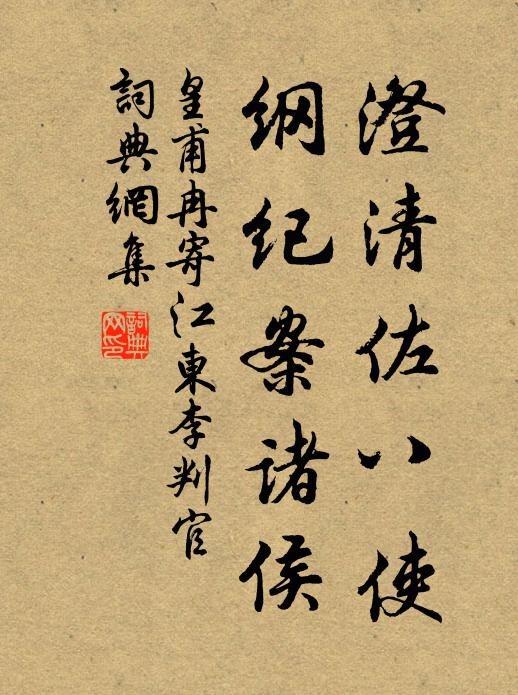 澄清佐八使
綱纪案諸侯
皇甫冉寄江東李判官
詞典網集
詞典网印